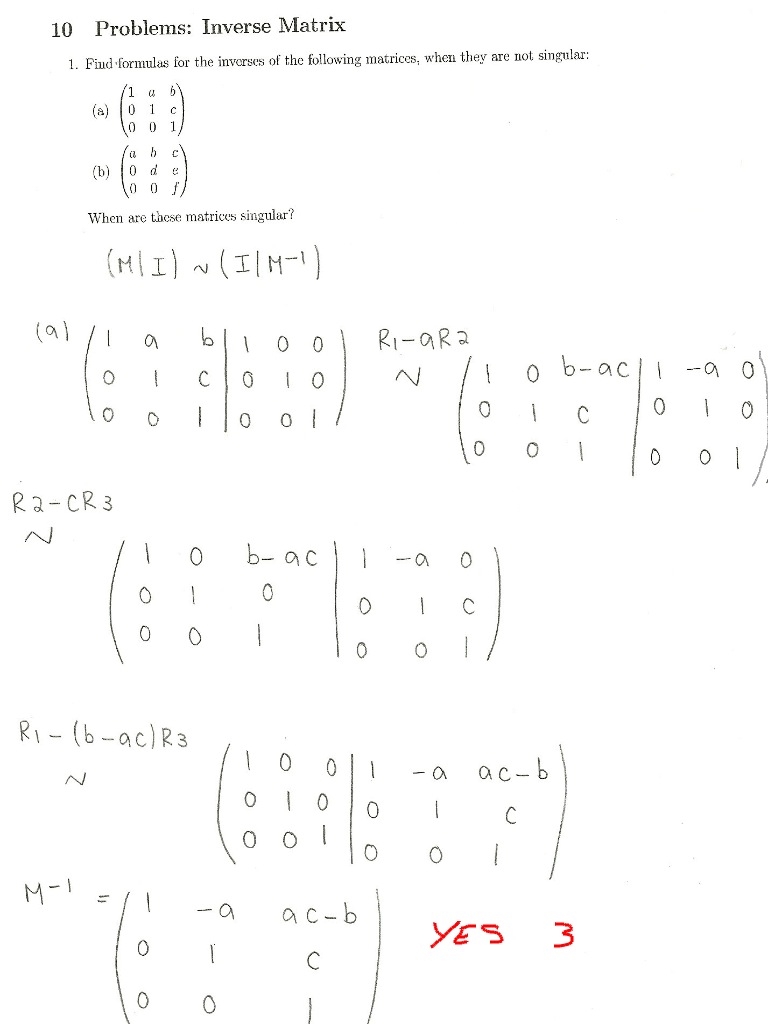 10 Problems: Inverse Matrix
1. Find formulas for the inverses of the following matrices, when they are not singular:
(a)
1 a b
0 1 c
0 0 1
(b)
a b c
0 d e
0 0 f
When are these matrices singular?
(M|I) ~ (I|M-1)
(a)
1 a b | 1 0 0
0 1 c | 0 1 0
0 0 1 | 0 0 1
R1-aR2
~
1 0 b-ac | 1 -a 0
0 1 c | 0 1 0
0 0 1 | 0 0 1
R2-CR3
~
1 0 b-ac | 1 -a 0
0 1 0 | 0 1 c
0 0 1 | 0 0 1
R1-(b-ac)R3
~
1 0 0 | 1 -a ac-b
0 1 0 | 0 1 c
0 0 1 | 0 0 1
M-1 =
1 -a ac-b
0 1 c
0 0 1
YES 3